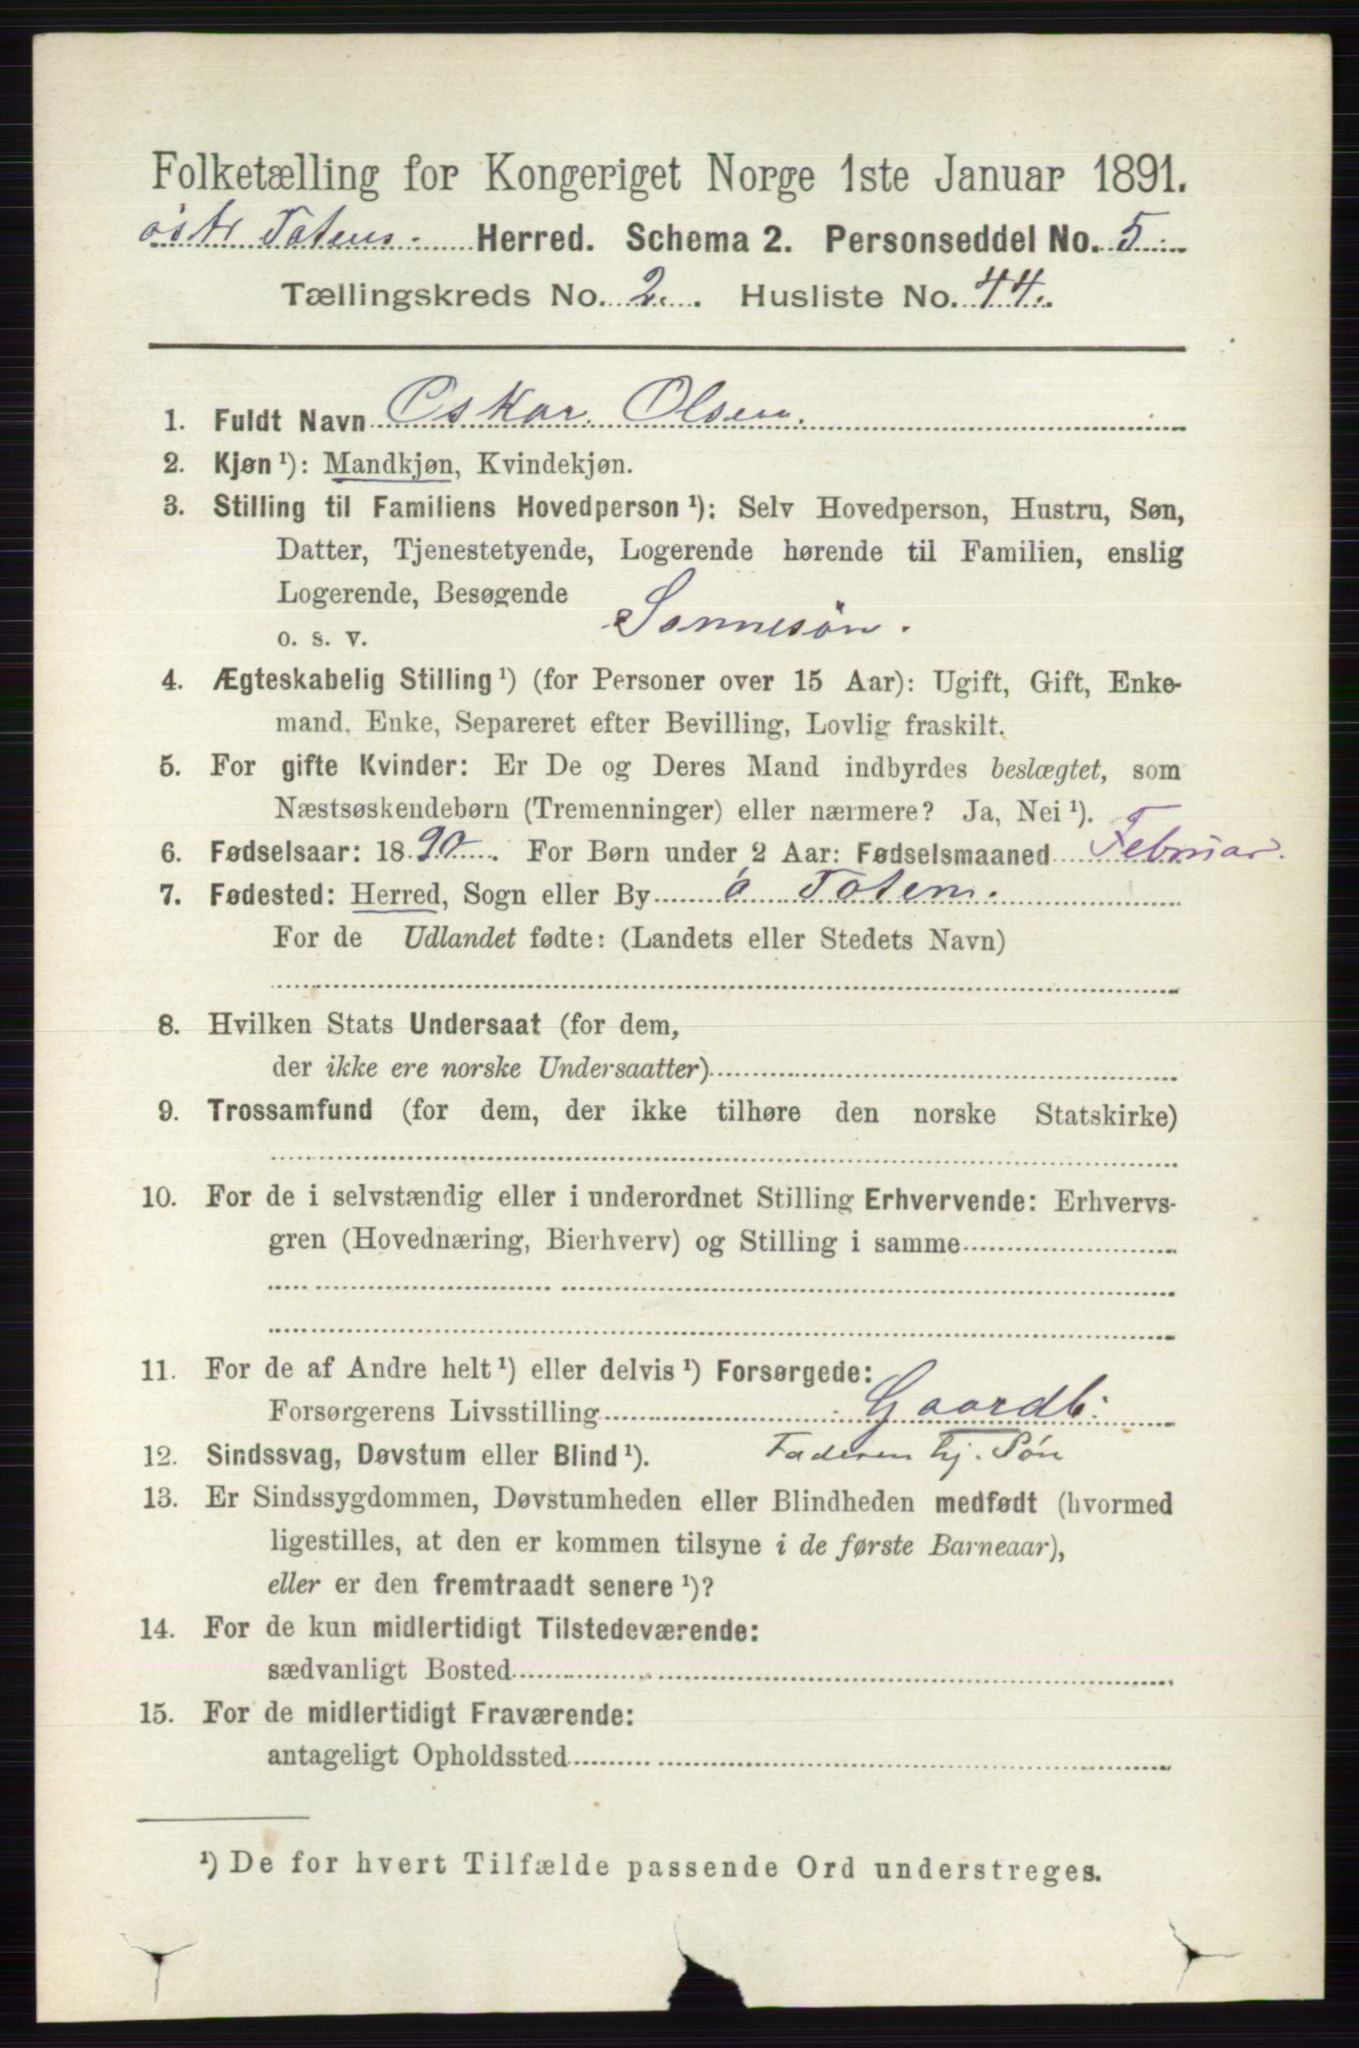 Folketælling for Kongeriget Norge 1ste Januar 1891.
østr Totens. Herred. Schema 2. Personseddel No. 5
Tællingskreds No. 2. Husliste No. 44.
1. Fuldt Navn Oskar Olsen.
2. Kjøn ¹): Mandkjøn, Kvindekjøn.
3. Stilling til Familiens Hovedperson ¹): Selv Hovedperson, Hustru, Søn,
Datter, Tjenestetyende, Logerende hørende til Familien, enslig
Logerende, Besøgende
o. s. v. Sønnesøn.
4. Ægteskabelig Stilling ¹) (for Personer over 15 Aar): Ugift, Gift, Enke-
mand, Enke, Separeret efter Bevilling, Lovlig fraskilt.
5. For gifte Kvinder: Er De og Deres Mand indbyrdes beslægtet, som
Næstsøskendebørn (Tremenninger) eller nærmere? Ja, Nei ¹).
6. Fødselsaar: 1890. For Børn under 2 Aar: Fødselsmaaned Februar.
7. Fødested: Herred, Sogn eller By ø Toten.
For de Udlandet fødte: (Landets eller Stedets Navn)
8. Hvilken Stats Undersaat (for dem,
der ikke ere norske Undersaatter)
9. Trossamfund (for dem, der ikke tilhøre den norske Statskirke)
10. For de i selvstændig eller i underordnet Stilling Erhvervende: Erhvervs-
gren (Hovednæring, Bierhverv) og Stilling i samme
11. For de af Andre helt ¹) eller delvis ¹) Forsørgede:
Forsørgerens Livsstilling Gaardb.
12. Sindssvag, Døvstum eller Blind ¹). Faderen hj. Søn
13. Er Sindssygdommen, Døvstumheden eller Blindheden medfødt (hvormed
ligestilles, at den er kommen tilsyne i de første Barneaar),
eller er den fremtraadt senere ¹)?
14. For de kun midlertidigt Tilstedeværende:
sædvanligt Bosted
15. For de midlertidigt Fraværende:
antageligt Opholdssted
¹) De for hvert Tilfælde passende Ord understreges.